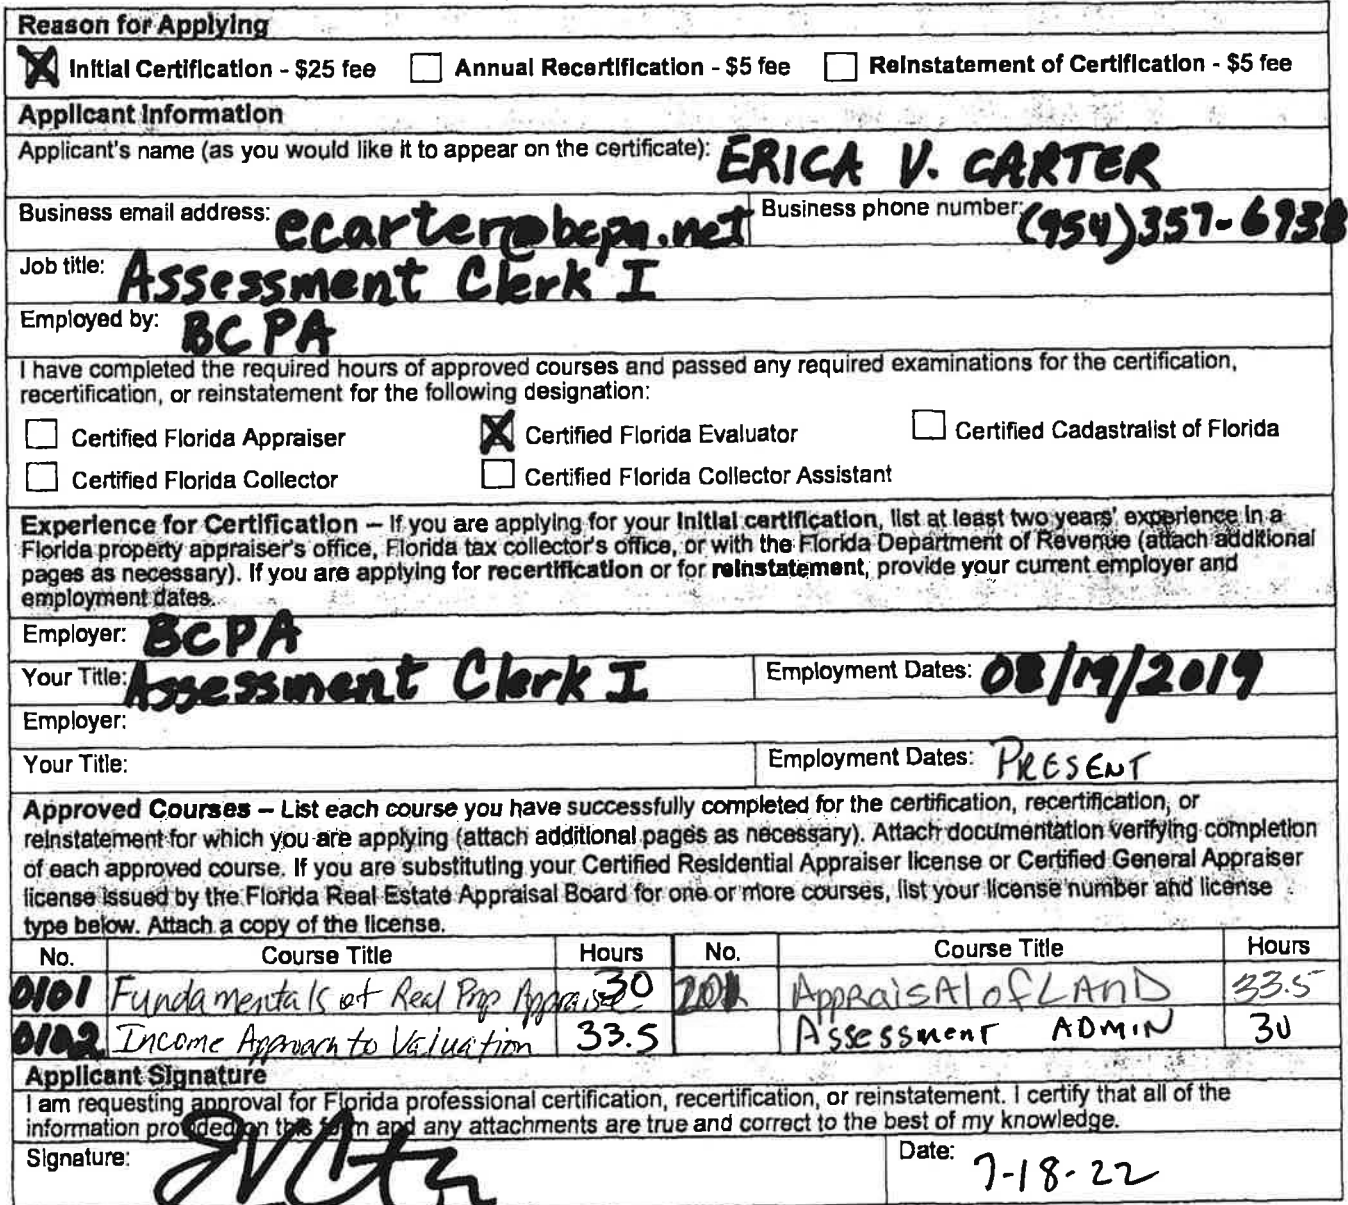 Reason for Applying
Initial Certification - $25 fee Annual Recertification - $5 fee Reinstatement of Certification - $5 fee
Applicant Information
Applicant's name (as you would like it to appear on the certificate): ERICA V. CARTER
Business email address: ecarter@bcpa.net Business phone number: (954)357-6938
Job title: Assessment Clerk I
Employed by: BCPA
I have completed the required hours of approved courses and passed any required examinations for the certification,
recertification, or reinstatement for the following designation:
Certified Florida Appraiser Certified Florida Evaluator Certified Cadastralist of Florida
Certified Florida Collector Certified Florida Collector Assistant
Experience for Certification – If you are applying for your initial certification, list at least two years' experience in a
Florida property appraiser's office, Florida tax collector's office, or with the Florida Department of Revenue (attach additional
pages as necessary). If you are applying for recertification or for reinstatement, provide your current employer and
employment dates.
Employer: BCPA
Your Title: Assessment Clerk I Employment Dates: 08/19/2019
Employer:
Your Title: Employment Dates: PRESENT
Approved Courses – List each course you have successfully completed for the certification, recertification, or
reinstatement for which you are applying (attach additional pages as necessary). Attach documentation verifying completion
of each approved course. If you are substituting your Certified Residential Appraiser license or Certified General Appraiser
license issued by the Florida Real Estate Appraisal Board for one or more courses, list your license number and license
type below. Attach a copy of the license.
No. Course Title Hours No. Course Title Hours
0101 Fundamentals of Real Prop Appraisal 30 AppRaisAl of LAnD 33.5
0102 Income Approach to Valuation 33.5 Assessment ADMIN 30
Applicant Signature
I am requesting approval for Florida professional certification, recertification, or reinstatement. I certify that all of the
information provided on this form and any attachments are true and correct to the best of my knowledge.
Signature: Date: 7-18-22